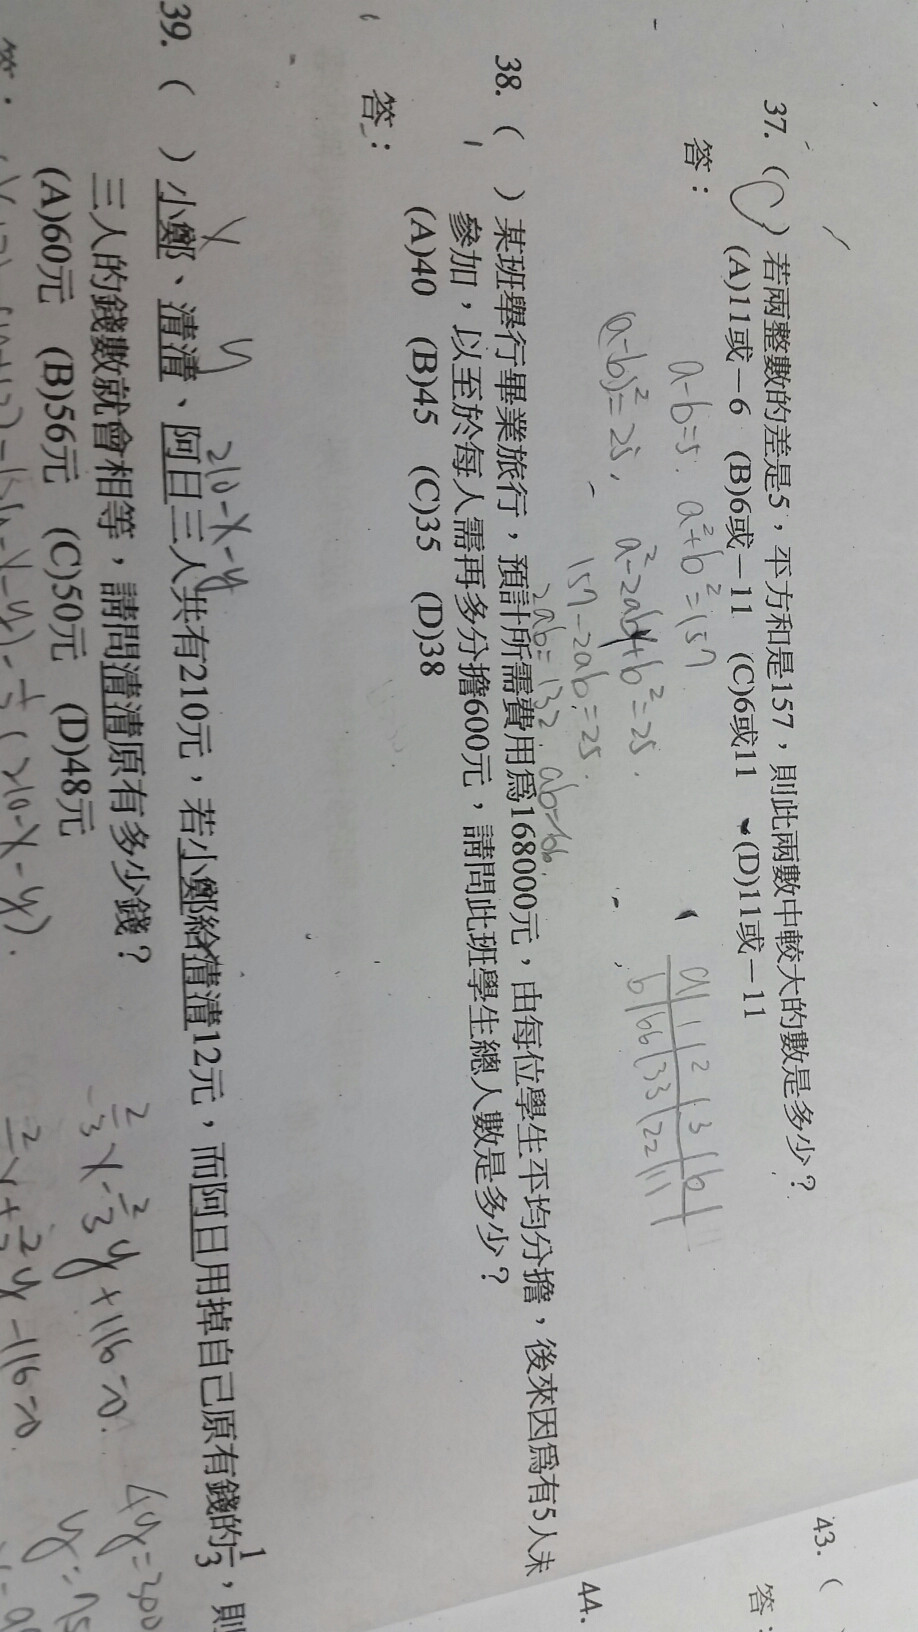 37. (C) 若兩整數的差是5，平方和是157，則此兩數中較大的數是多少？
(A)11或－6 (B)6或－11 (C)6或11 (D)11或－11
答：
a-b=5. a²+b²=157
(a-b)²=25, a²-2ab+b²=25.
157-2ab=25.
2ab=132 ab=66.
a | 1 | 2 | 3 | 6
b | 66 | 33 | 22 | 11
38. ( ) 某班舉行畢業旅行，預計所需費用為168000元，由每位學生平均分擔，後來因為有5人未
參加，以至於每人需再多分擔600元，請問此班學生總人數是多少？
(A)40 (B)45 (C)35 (D)38
答：
x y 210-x-y
39. ( ) 小鄭、清清、阿日三人共有210元，若小鄭給清清12元，而阿日用掉自己原有錢的1/3，則
三人的錢數就會相等，請問清清原有多少錢？
(A)60元 (B)56元 (C)50元 (D)48元
答：
(210-x-y).
y+116=0.
y-116=0.
4y=300
y=75
43. (
答：
44.